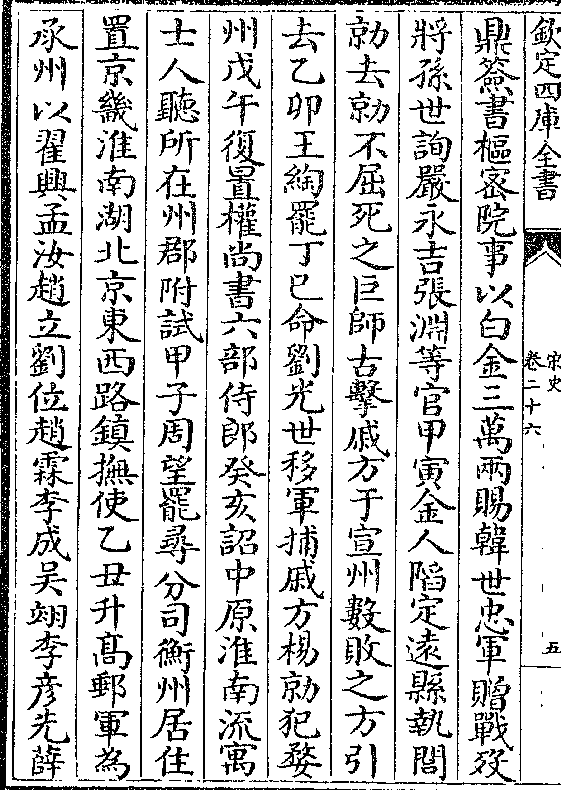 欽定四庫全書
宋史
卷二十六
五
鼎簽書樞密院事以白金三萬兩賜韓世忠軍贈戰歿
將孫世詢嚴永吉張淵等官甲寅金人陷定遠縣執閭
勍去勍不屈死之巨師古擊戚方于宣州數敗之方引
去乙卯王綯罷丁巳命劉光世移軍捕戚方楊勍犯婺
州戊午復置權尚書六部侍郎癸亥詔中原淮南流寓
士人聽所在州郡附試甲子周望罷尋分司衡州居住
置京畿淮南湖北京東西路鎮撫使乙丑升高郵軍為
承州以翟興孟汝趙立劉位趙霖李成吳翊李彦先薛